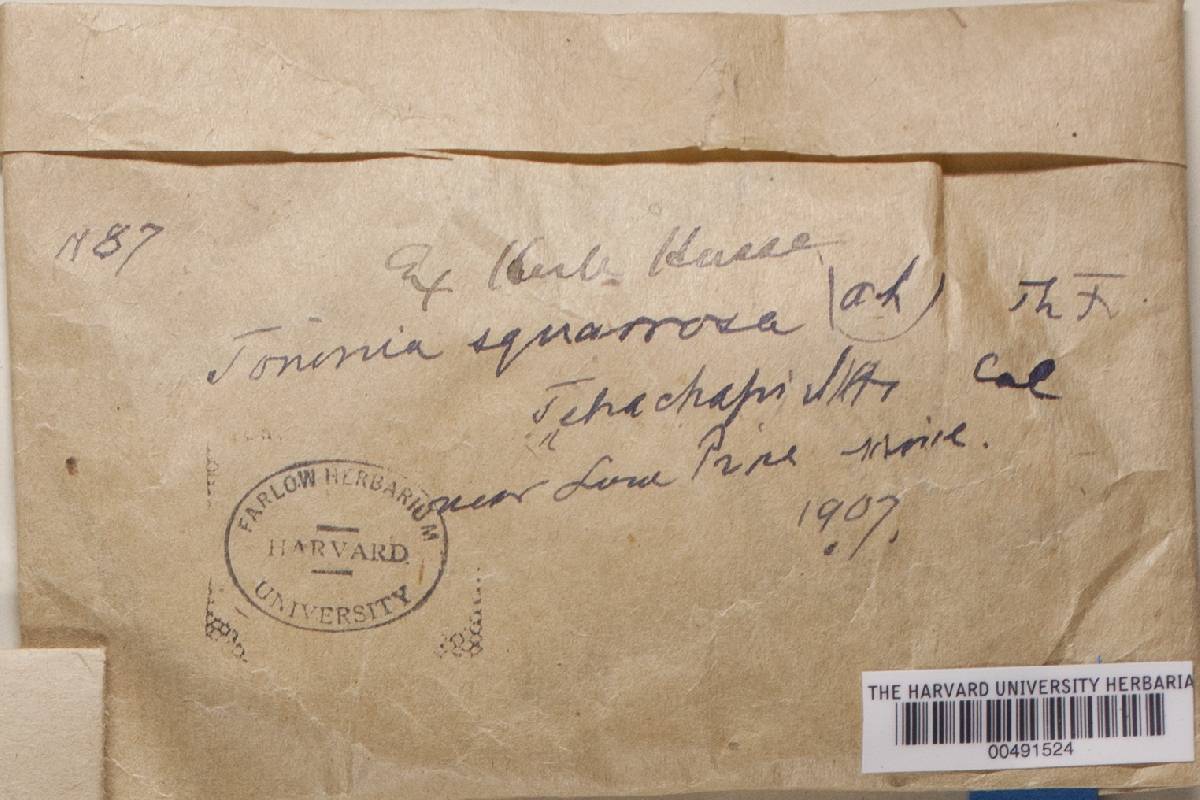 N 87
Ex Herb. Hasse
Toninia squarrosa (Ach) Th Fr.
Tehachapi Mts Cal
near Lone Pine mine.
1907.
FARLOW HERBARIUM
HARVARD
UNIVERSITY
THE HARVARD UNIVERSITY HERBARIA
00491524